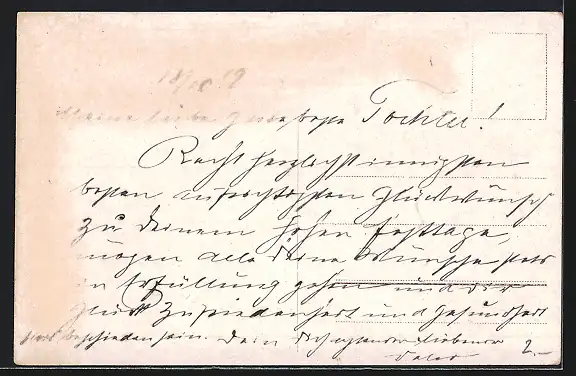 18/10 19
Meine liebe gute Tochter!
Recht herzlichst innigsten
besten aufrichtigsten Glückwunsch
zu Deinem hohen Festtage,
mögen alle Deine Wünsche stets
in Erfüllung gehen und Dir
Glück Zufriedenheit und Gesundheit
stets beschieden sein. Dein Dich liebender
Vater
2.-